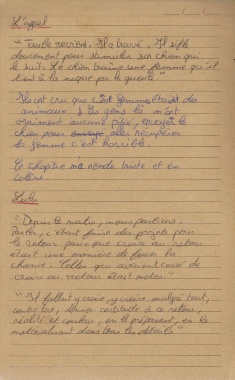 L'appel
"Taube revient. Il a trouvé. Il siffle
doucement pour stimuler son chien qui
le suit. Le chien traîne une femme qu'il
tient à la nuque par la gueule."
Ils ont cru que ces femmes étaient des
animaux. Ces gens là n'ont
vraiment aucune pitié, envoyer le
chien pour aller récupérer
la femme c'est horrible.
Ce chapitre m'a rendu triste et en
colère.
Lulu
"Depuis le matin, nous parlions.
Parler, c'était faire des projets pour
le retour parce que croire au retour
était une manière de forcer la
chance. Celles qui avaient cessé de
croire au retour étaient mortes."
"Il fallait y croire, y croire malgré tout,
contre tout, donner certitude à ce retour,
réalité et couleur, en le préparant, en le
matérialisant dans tous les détails"